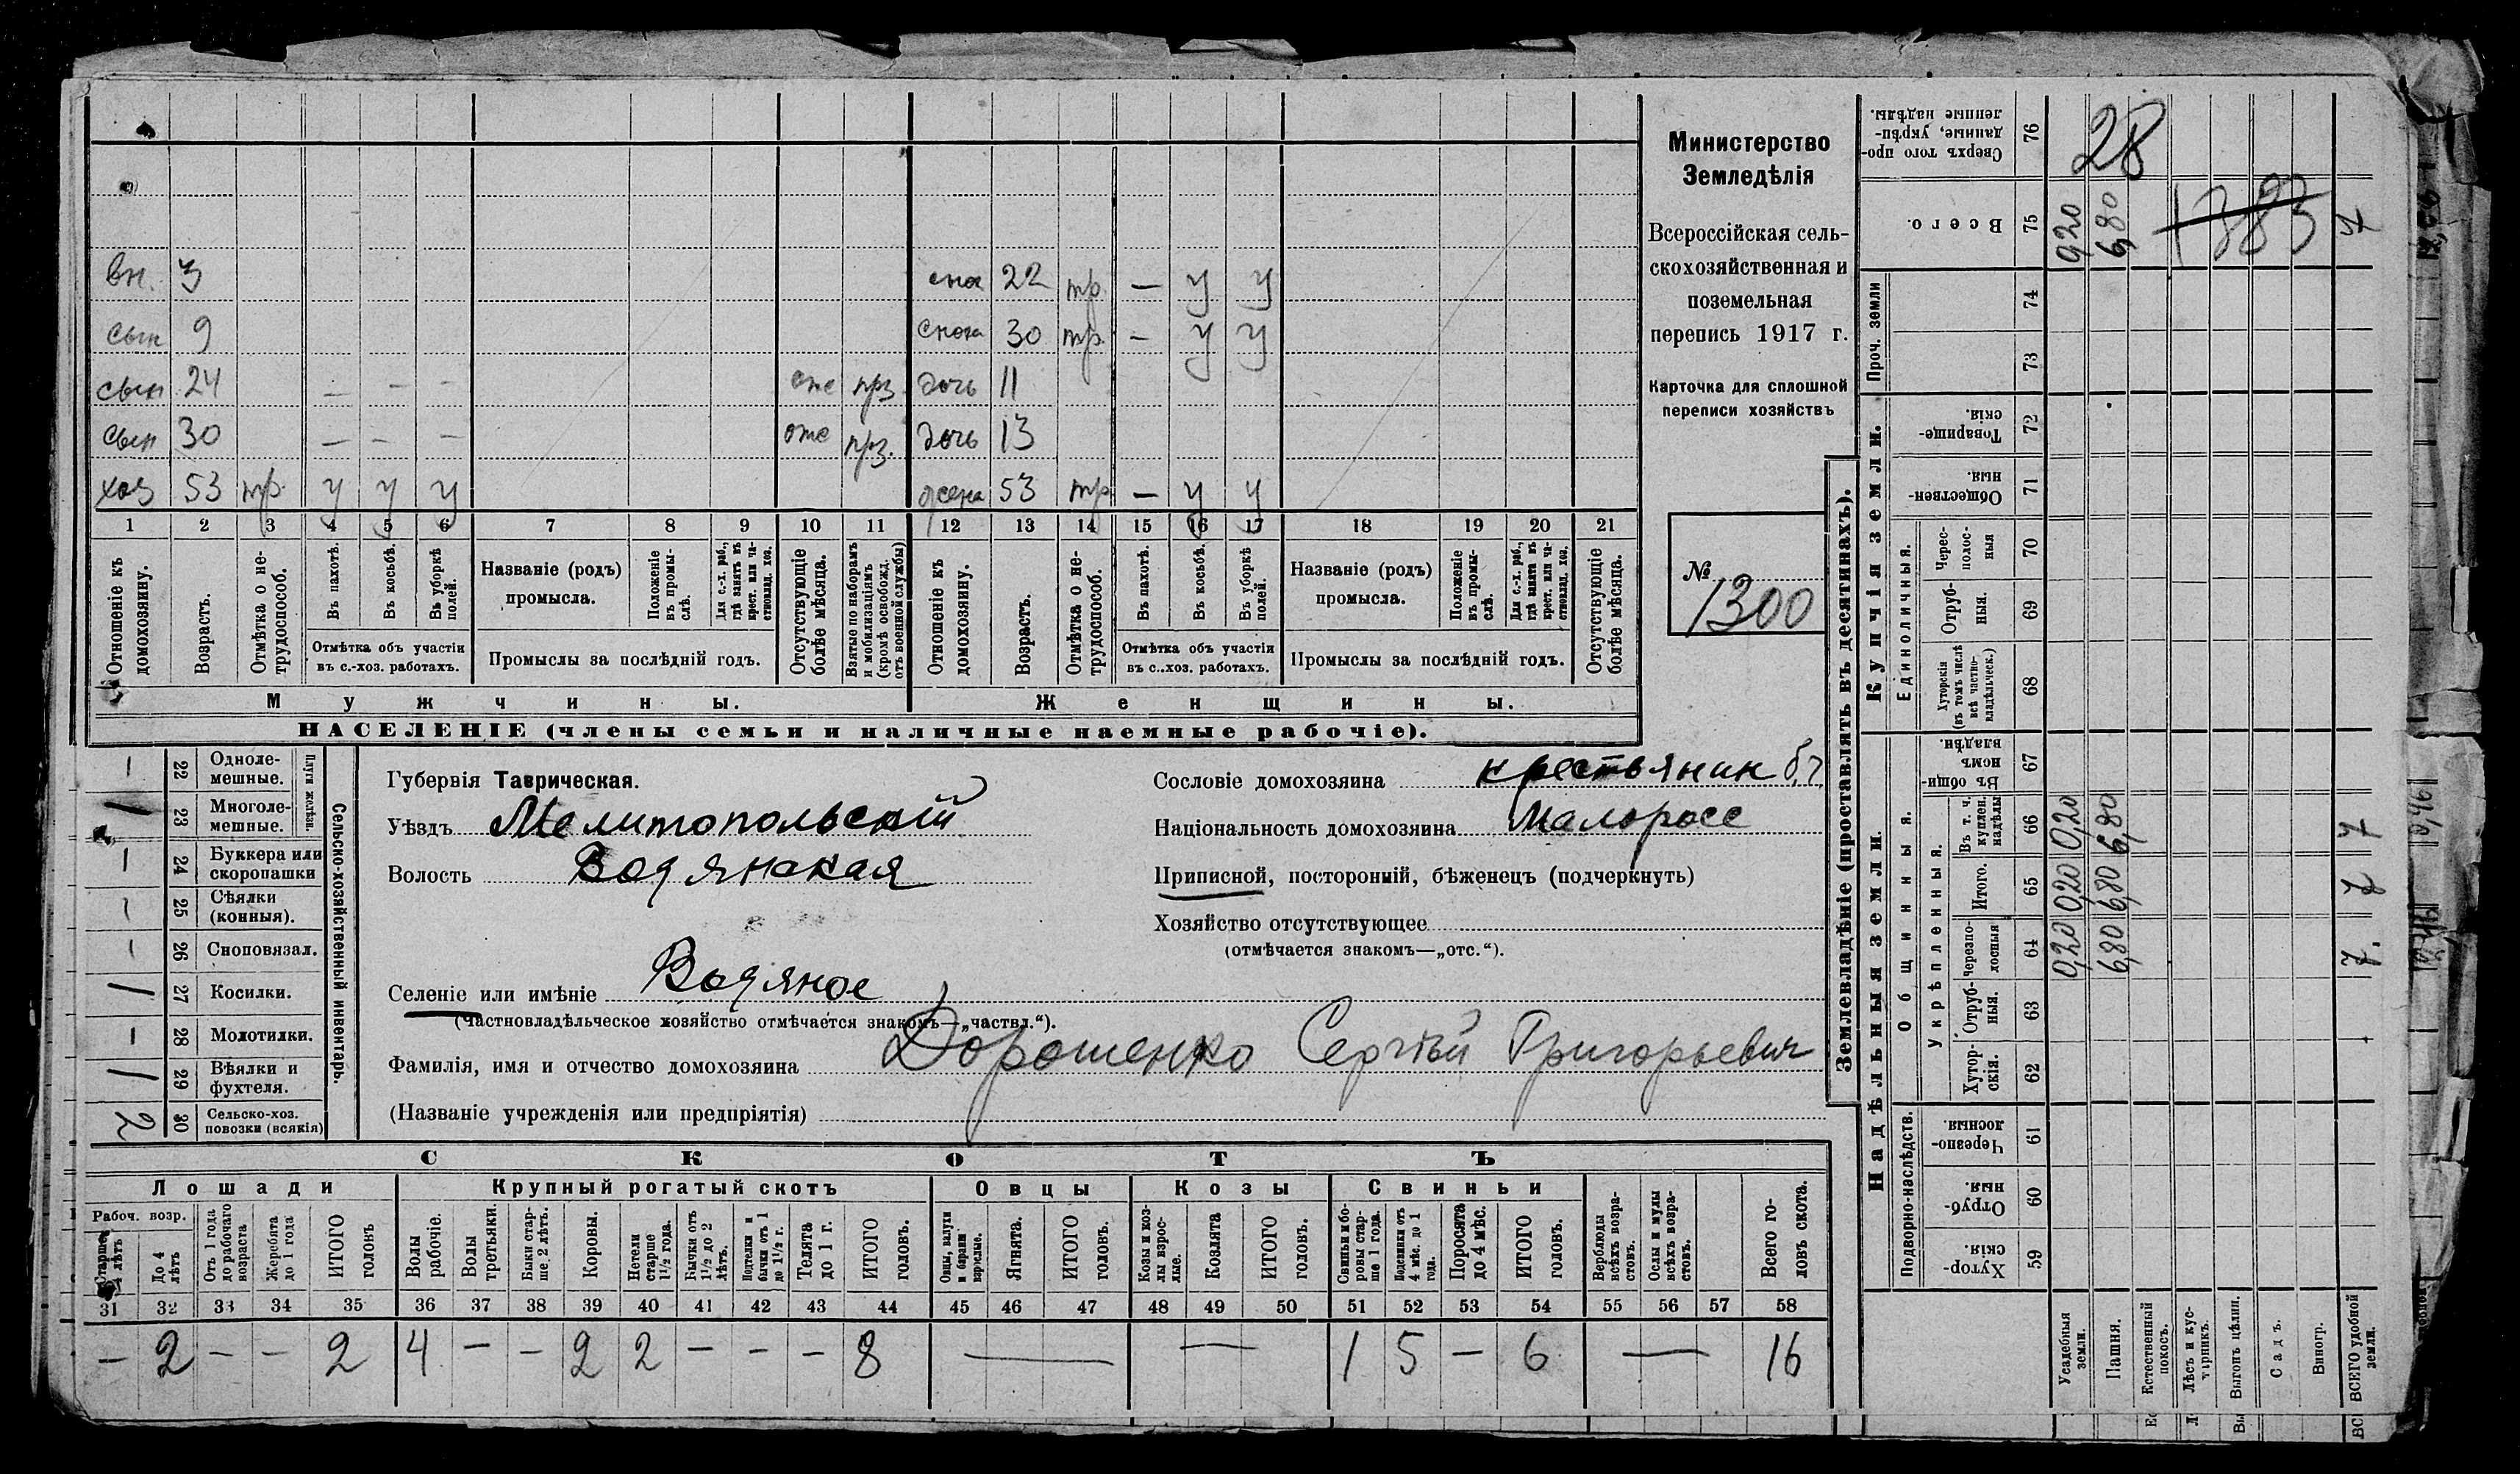 вн. 3 сно 22 тр. — у у
сын 9 сноха 30 тр. — у у
сын 24 — — — отс прз дочь 11
сын 30 — — — отс прз. дочь 13
хоз 53 тр. у у у жена 53 тр — у у
1 2 3 4 5 6 7 8 9 10 11 12 13 14 15 16 17 18 19 20 21
Отношеніе къ домохозяину.
Возрастъ.
Отмѣтка о нетрудоспособ.
Въ пахотѣ.
Въ косьбѣ.
Въ уборкѣ полей.
Отмѣтка объ участіи
въ с.-хоз. работахъ.
Названіе (родъ)
промысла.
Положеніе въ промыслѣ.
Для с.-х. раб., гдѣ занятъ въ крест. или частновлад. хоз.
Промыслы за послѣдній годъ.
Отсутствующіе болѣе мѣсяца.
Взятые по наборамъ и мобилизаціямъ (кромѣ освобожд. отъ военной службы)
Отношеніе къ домохозяину.
Возрастъ.
Отмѣтка о нетрудоспособ.
Въ пахотѣ.
Въ косьбѣ.
Въ уборкѣ полей.
Отмѣтка объ участіи
въ с.-хоз. работахъ.
Названіе (родъ)
промысла.
Положеніе въ промыслѣ.
Для с.-х. раб., гдѣ занята въ крест. или частновлад. хоз.
Промыслы за послѣдній годъ.
Отсутствующіе болѣе мѣсяца.
Мужчины. Женщины.
НАСЕЛЕНІЕ (члены семьи и наличные наемные рабочіе).
Министерство
Земледѣлія
Всероссійская сель-
скохозяйственная и
поземельная
перепись 1917 г.
Карточка для сплошной
переписи хозяйствъ
№
1300
— 22 Одноле-мешные.
1 23 Многоле-мешные.
Плуги желѣзн.
— 24 Буккера или скоропашки
— 25 Сѣялки (конныя).
— 26 Сноповязал.
1 27 Косилки.
— 28 Молотилки.
1 29 Вѣялки и фухтеля.
2 30 Сельско-хоз. повозки (всякія)
Сельско-хозяйственный инвентарь.
Губернія Таврическая.
Уѣздъ Мелитопольскій
Волость Водянская
Селеніе или имѣніе Водяное
(Частновладѣльческое хозяйство отмѣчается знакомъ—„частвл.“).
Фамилія, имя и отчество домохозяина Дорошенко Сергѣй Григорьевич
(Названіе учрежденія или предпріятія)
Сословіе домохозяина крестьянин
Національность домохозяина Малоросс
Приписной, посторонній, бѣженецъ (подчеркнуть)
Хозяйство отсутствующее
(отмѣчается знакомъ—„отс.“).
СКОТЪ
Лошади Крупный рогатый скотъ Овцы Козы Свиньи
Рабоч. возр.
Старше 4 лѣтъ
До 4 лѣтъ
Отъ 1 года до рабочаго возраста
Жеребята до 1 года
ИТОГО головъ
Волы рабочіе.
Волы третьяки.
Быки старше 2 лѣтъ.
Коровы.
Нетели старше 1½ года.
Бычки отъ 1½ до 2 лѣтъ.
Подтелки и бычки отъ 1 до 1½ г.
Телята до 1 г.
ИТОГО головъ.
Овцы, валухи и бараны взрослые.
Ягнята.
ИТОГО головъ.
Козы и козлы взрослые.
Козлята
ИТОГО головъ.
Свиньи и боровы старше 1 года.
Подсвинки отъ 4 мѣс. до 1 года.
Поросята до 4 мѣс.
ИТОГО головъ.
Верблюды всѣхъ возрастовъ.
Ослы и мулы всѣхъ возрастовъ.
Всего головъ скота.
31 32 33 34 35 36 37 38 39 40 41 42 43 44 45 46 47 48 49 50 51 52 53 54 55 56 57 58
— 2 — — 2 4 — — 2 2 — — — 8 — — 1 5 — 6 — 16
Землевладѣніе (проставлять въ десятинахъ).
Сверхъ того проданные, укрѣпленные надѣлы. 76 28
Всего. 75 0,20 6,80 1383 7
Проч. земли 74
73
Купчія земли.
Товарищескія. 72
Общественныя. 71
Единоличныя.
Чересполосныя 70
Отрубныя. 69
Хуторскія (въ томъ числѣ всѣ частновладѣльческ.) 68
Надѣльныя земли.
Общинныя.
Въ общинномъ владѣн. 67
Укрѣпленныя.
Въ т. ч. куплен. надѣлы 66 0,20 6,80 7
Итого. 65 0,20 6,80 7
Черезполосныя 64 0,20 6,80 7.
Отрубныя. 63
Хуторскія. 62
Подворно-наслѣдств.
Черезполосныя 61
Отрубныя. 60
Хуторскія. 59
Усадебныя земли.
Пашня.
Естественный покосъ.
Лѣсъ и кустарникъ.
Выгонъ цѣлин.
Садъ.
Виногр.
ВСЕГО удобной земли.